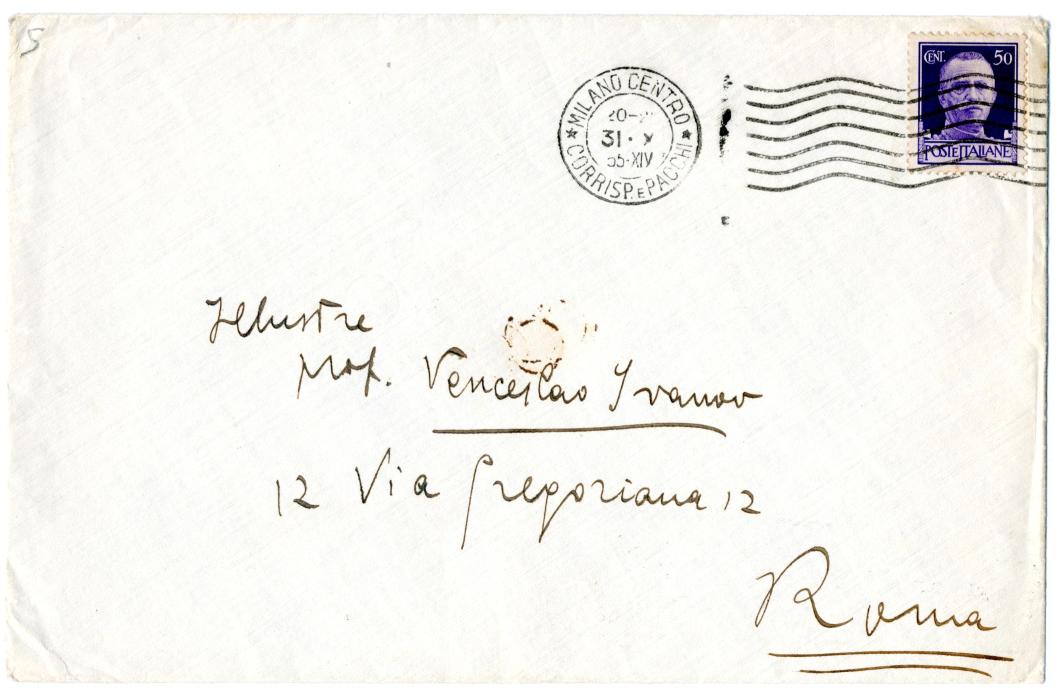 5
MILANO CENTRO
20-2
31 · X
35-XIV
CORRISP. E PACCHI
CENT. 50
POSTE ITALIANE
Illustre
prof. Venceslao Ivanov
12 Via Gregoriana 12
Roma